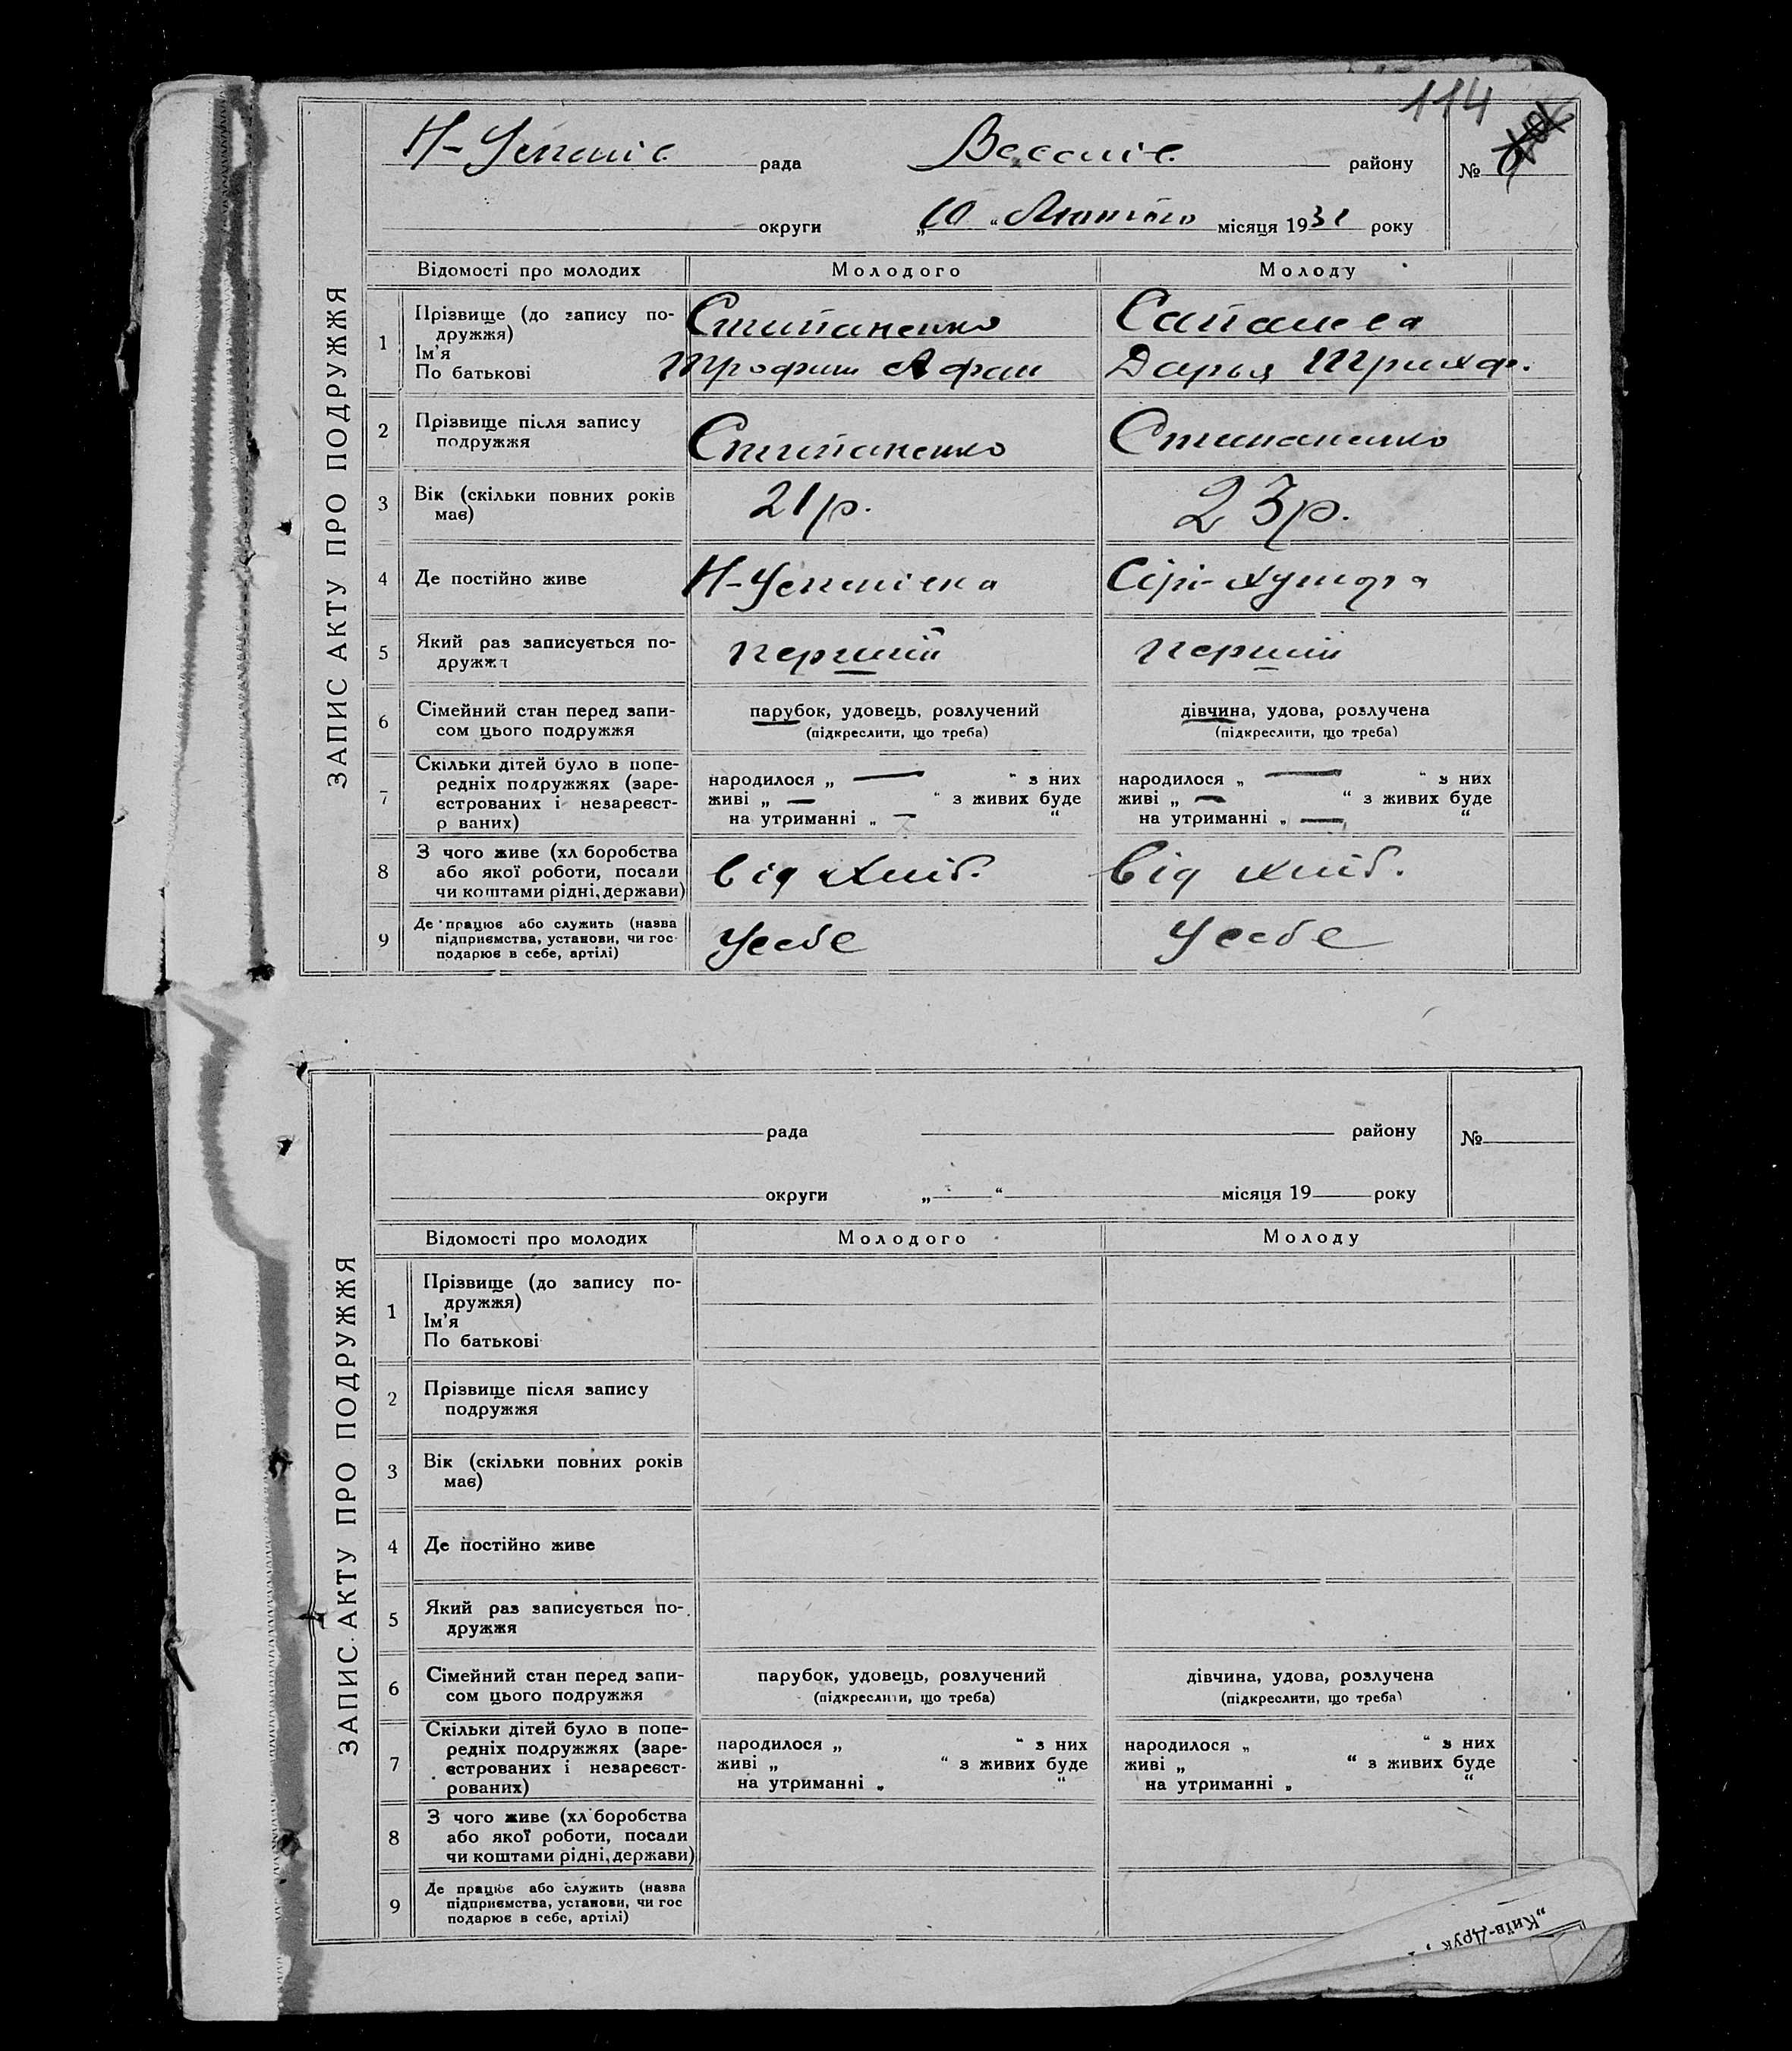 114
Н-Успенів. рада Веселів. району №
округи „10“ Лютого місяця 1931 року
ЗАПИС АКТУ ПРО ПОДРУЖЖЯ
Відомості про молодих Молодого Молоду
1 Прізвище (до запису по-
дружжя)
Ім'я
По батькові
Стипаненко
Трофим Афан
Дарья
2 Прізвище після запису
подружжя
Стипаненко Стипаненко
3 Вік (скільки повних років
має)
21 р. 23 р.
4 Де постійно живе Н-Успенівка Сірі-хутора
5 Який раз записується по-
дружжя
перший перший
6 Сімейний стан перед запи-
сом цього подружжя
парубок, удовець, розлучений
(підкреслити, що треба)
дівчина, удова, розлучена
(підкреслити, що треба)
7 Скільки дітей було в попе-
редніх подружжях (заре-
єстрованих і незареєст-
р ваних)
народилося „ — “ з них
живі „ — “ з живих буде
на утриманні „ — “
народилося „ — “ з них
живі „ — “ з живих буде
на утриманні „ — “
8 З чого живе (хл боробства
або якої роботи, посади
чи коштами рідні, держави)
від хліб. від хліб.
9 Де працює або служить (назва
підприємства, установи, чи гос
подарює в себе, артілі)
Усебе Усебе
рада району №
округи „ “ місяця 19 року
ЗАПИС АКТУ ПРО ПОДРУЖЖЯ
Відомості про молодих Молодого Молоду
1 Прізвище (до запису по-
дружжя)
Ім'я
По батькові
2 Прізвище після запису
подружжя
3 Вік (скільки повних років
має)
4 Де постійно живе
5 Який раз записується по-
дружжя
6 Сімейний стан перед запи-
сом цього подружжя
парубок, удовець, розлучений
(підкреслити, що треба)
дівчина, удова, розлучена
(підкреслити, що треба)
7 Скільки дітей було в попе-
редніх подружжях (заре-
єстрованих і незареєст-
рованих)
народилося „ “ з них
живі „ “ з живих буде
на утриманні „ “
народилося „ “ з них
живі „ “ з живих буде
на утриманні „ “
8 З чого живе (хл боробства
або якої роботи, посади
чи коштами рідні, держави)
9 Де працює або служить (назва
підприємства, установи, чи гос
подарює в себе, артілі)
„Київ-Друк“,